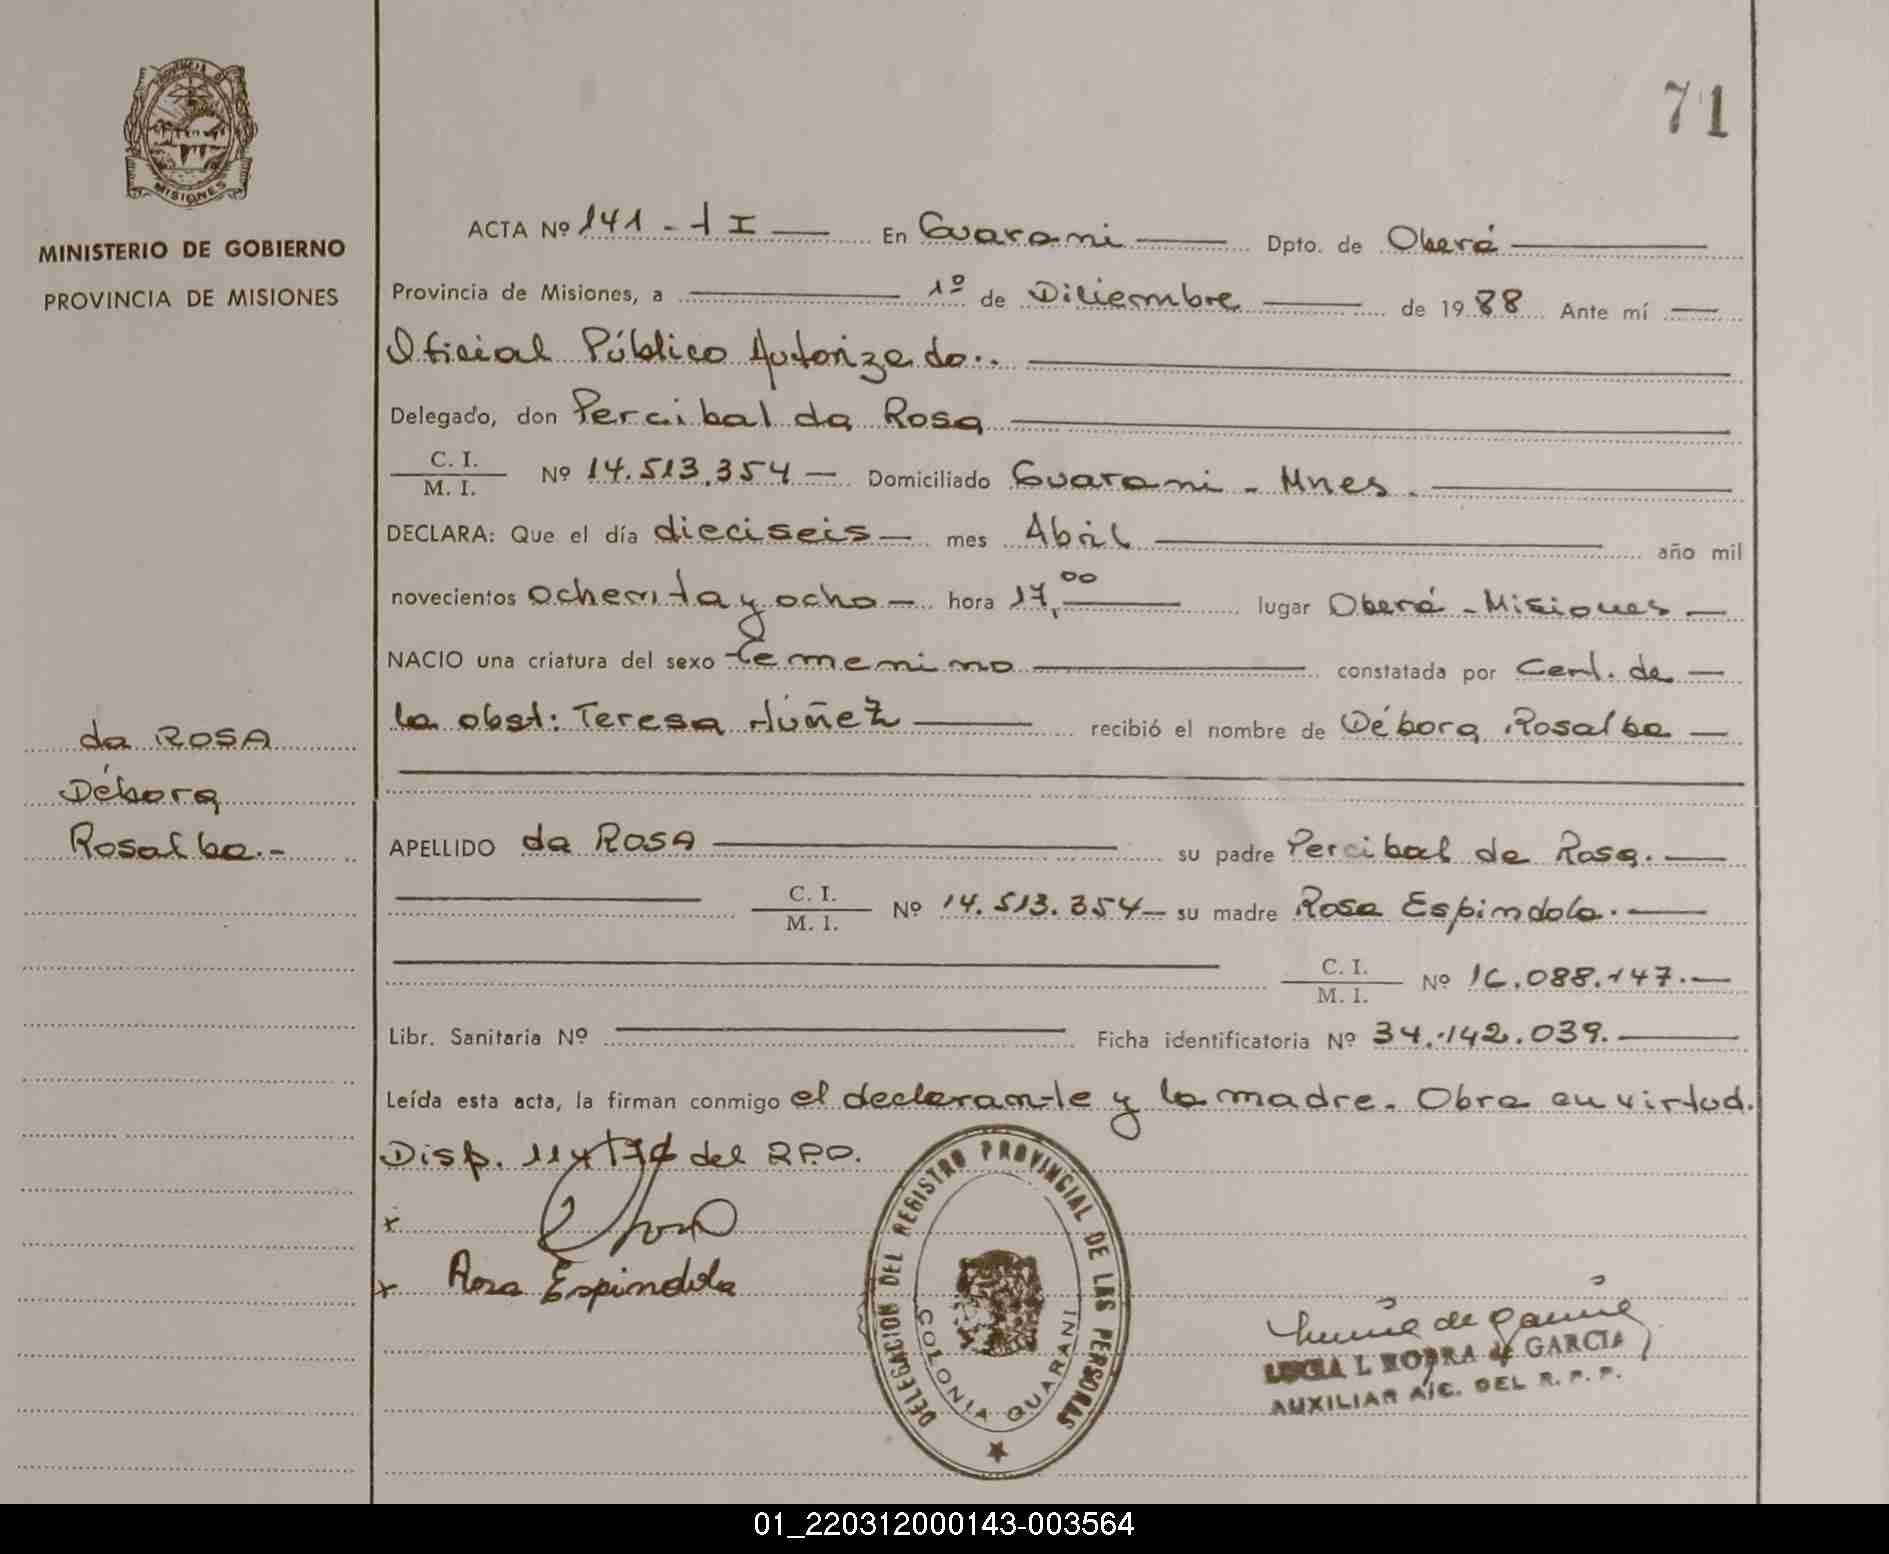 71
PROVINCIA DE
MISIONES
MINISTERIO DE GOBIERNO
PROVINCIA DE MISIONES
da ROSA
Débora
Rosalba.-
ACTA Nº 141 - 1 I — En Guarani — Dpto. de Oberá —
Provincia de Misiones, a — 1º de Diciembre — de 1988 Ante mí —
Oficial Público Autorizado.. —
Delegado, don Percibal da Rosa —
C. I. / M. I. Nº 14.513.354 — Domiciliado Guarani - Mnes. —
DECLARA: Que el día dieciseis — mes Abril — año mil
novecientos ochenta y ocho — hora 17,00 — lugar Oberá - Misiones —
NACIO una criatura del sexo femenino — constatada por Cert. de —
la obst: Teresa Núñez — recibió el nombre de Débora Rosalba —
APELLIDO da ROSA — su padre Percibal da Rosa. —
C. I. / M. I. Nº 14.513.354 — su madre Rosa Espindola. —
C. I. / M. I. Nº 16.088.147. —
Libr. Sanitaria Nº — Ficha identificatoria Nº 34.142.039. —
Leída esta acta, la firman conmigo el declarante y la madre. Obra en virtud.
Disp. del R.P.P.
x
x Rosa Espindola
DELEGACION DEL REGISTRO PROVINCIAL DE LAS PERSONAS
COLONIA GUARANI
de Garcia
LUCIA L de GARCIA
AUXILIAR A/C. DEL R. P. P.
01_220312000143-003564